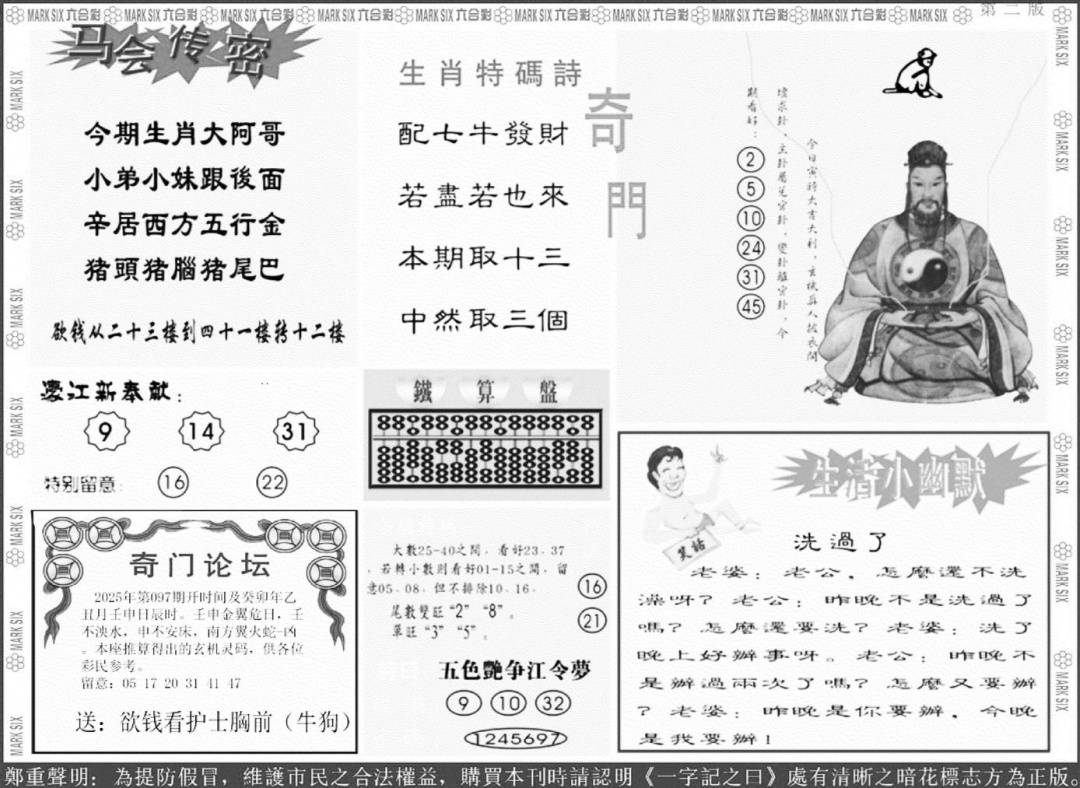 MARK SIX 六合彩 MARK SIX 六合彩 MARK SIX 六合彩 MARK SIX 六合彩 MARK SIX 六合彩 MARK SIX 六合彩 MARK SIX 六合彩 MARK SIX 六合彩 MARK SIX 六合彩 MARK SIX
第二版
马会传密
今期生肖大阿哥
小弟小妹跟後面
辛居西方五行金
猪頭猪腦猪尾巴
欲钱从二十三楼到四十一楼转十二楼
生肖特碼詩
配七牛發財
若盡若也來
本期取十三
中然取三個
奇門
今日寅時大吉大利，玄機真人披衣問
壇求卦，主卦屬兌宮卦，變卦離宮卦，今
期看好：
2
5
10
24
31
45
濠江新奉献：
9 14 31
特别留意： 16 22
鐵算盤
奇门论坛
2025年第097期开时间及癸卯年乙
丑月壬申日辰时。壬申金翼危日，壬
不泱水，申不安床，南方翼火蛇-凶
。本座推算得出的玄机灵码，供各位
彩民参考。
留意：05 17 20 31 41 47
送：欲钱看护士胸前（牛狗）
大數25-40之間，看好23、37
，若轉小數則看好01-15之間，留
意05、08，但不排除10、16。
尾數雙旺“2”“8”。
單旺“3”“5”。
16
21
五色艷争江令夢
9 10 32
1245697
生活小幽默
笑話
洗過了
老婆：老公，怎麼還不洗
澡呀？老公：昨晚不是洗過了
嗎？怎麼還要洗？老婆：洗了
晚上好辦事呀。老公：昨晚不
是辦過兩次了嗎？怎麼又要辦
？老婆：昨晚是你要辦，今晚
是我要辦！
鄭重聲明：為提防假冒，維護市民之合法權益，購買本刊時請認明《一字記之曰》處有清晰之暗花標志方為正版。